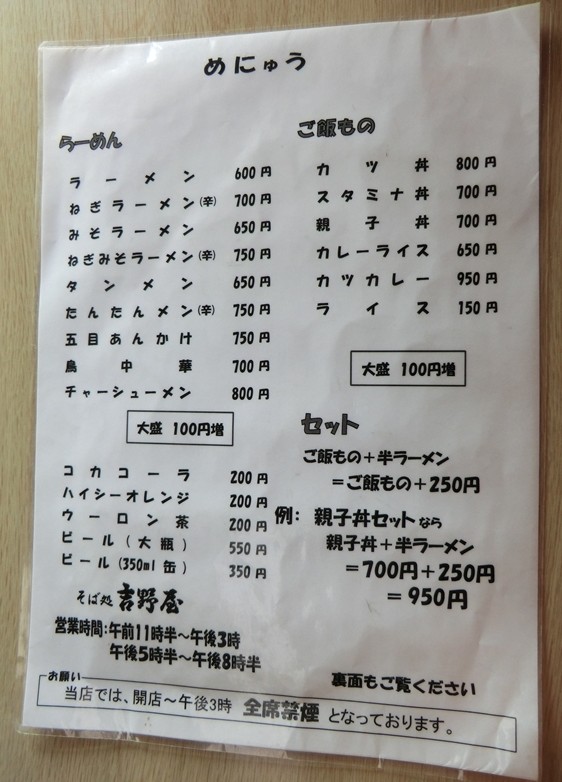 めにゅう
らーめん
ラーメン 600円
ねぎラーメン(辛) 700円
みそラーメン 650円
ねぎみそラーメン(辛) 750円
タンメン 650円
たんたんメン(辛) 750円
五目あんかけ 750円
鳥中華 700円
チャーシューメン 800円
大盛 100円増
コカコーラ 200円
ハイシーオレンジ 200円
ウーロン茶 200円
ビール(大瓶) 550円
ビール(350ml缶) 350円
そば処 吉野屋
営業時間:午前11時半~午後3時
午後5時半~午後8時半
ご飯もの
カツ丼 800円
スタミナ丼 700円
親子丼 700円
カレーライス 650円
カツカレー 950円
ライス 150円
大盛 100円増
セット
ご飯もの+半ラーメン
=ご飯もの+250円
例: 親子丼セットなら
親子丼+半ラーメン
=700円+250円
=950円
裏面もご覧ください
お願い
当店では、開店~午後3時 全席禁煙 となっております。